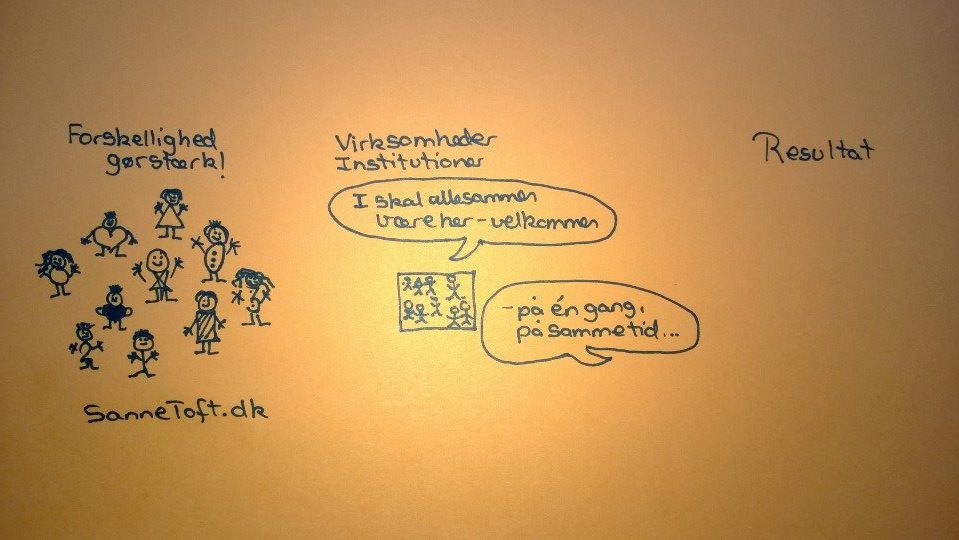 Forskellighed
gør stærk!
SanneToft.dk
Virksomheder
Institutioner
I skal allesammen
være her - velkommen
- på én gang,
på samme tid...
Resultat